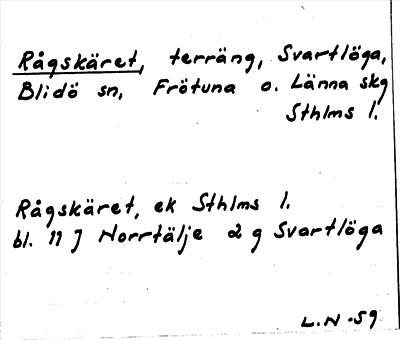 Rågskäret, terräng, Svartlöga,
Blidö sn, Frötuna o. Länna skg
Sthlms l.
Rågskäret, ek Sthlms l.
bl. 11 J Norrtälje 2 g Svartlöga
L.N -59